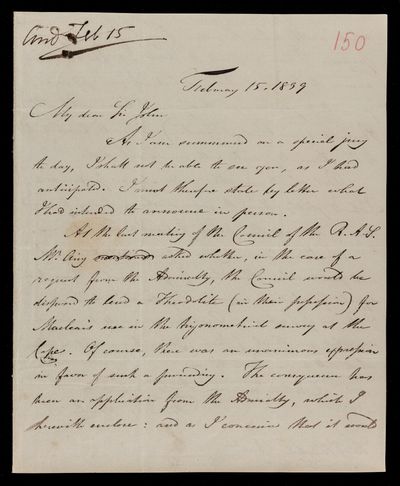 And Feb 15
150
February 15. 1839
My dear Sir John
As I am summoned on a special jury
to day, I shall not be able to see you, as I had
anticipated. I must therefore state by letter what
I had intended to announce in person.
At the last meeting of the Council of the R.A.S.
Mr. Airy asked whether, in the case of a
request from the Admiralty, the Council would be
disposed to lend a Theodolite (in their possession) for
Maclear's use in the trigonometrical survey at the
Cape. Of course, there was an unanimous expression
in favor of such a proceeding. The consequence has
been an application from the Admiralty, which I
herewith enclose: and as I conceive that it would